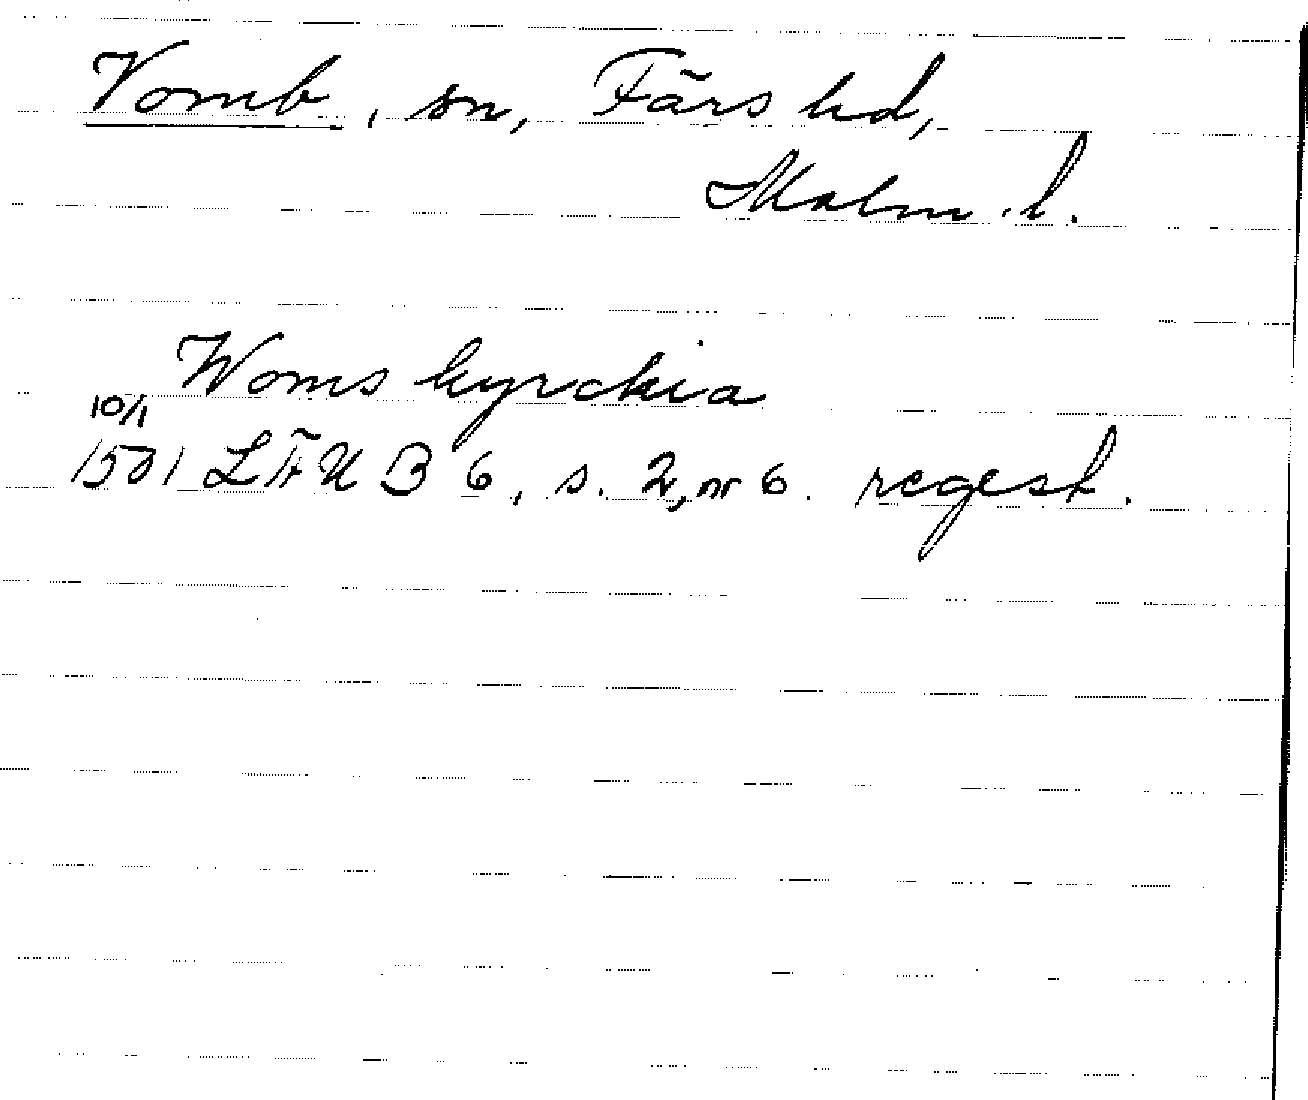 Vomb, sn, Färs hd,
Malm. l.
Woms kyrckia
10/1
1501 LÄUB 6, s. 2, nr 6. regest.